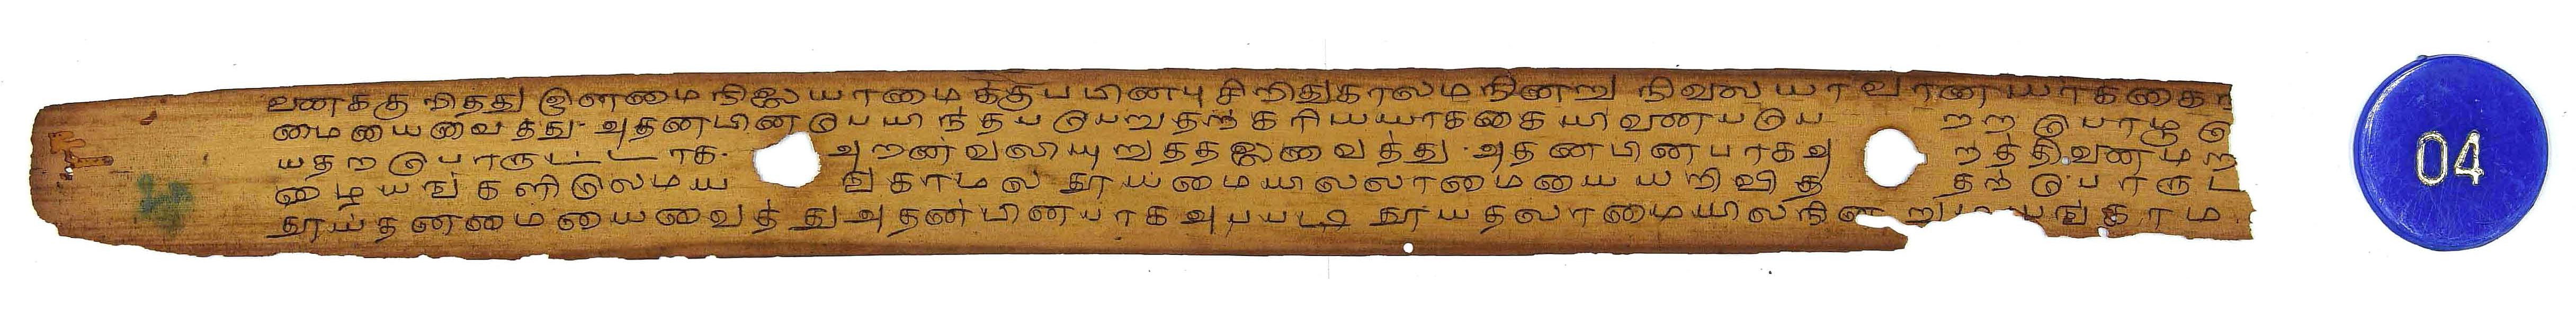 வணககு நிதது இளமை நிலையாமைக்குப பினபு சிறிதுகாலம நினறு நிலையா வான யாககை
மையைவைத்து அதனபின பெயிந்தப பெயறுதற்கரியயாககையி வணபய றற பொழு
யதறபொருட்டாக அறன்வலியுறுததலைவைத்து அதனபினபாக அ றத்தி வணமற
ழையஙகளிலெமய ஙகாமல தூயமையிலலாமையையறிவித தற் பொருட
தூய்தனமையைவைத்து அதன்பினபாக அபபடி தூயதலாமையிலநின று யஙகாம
04